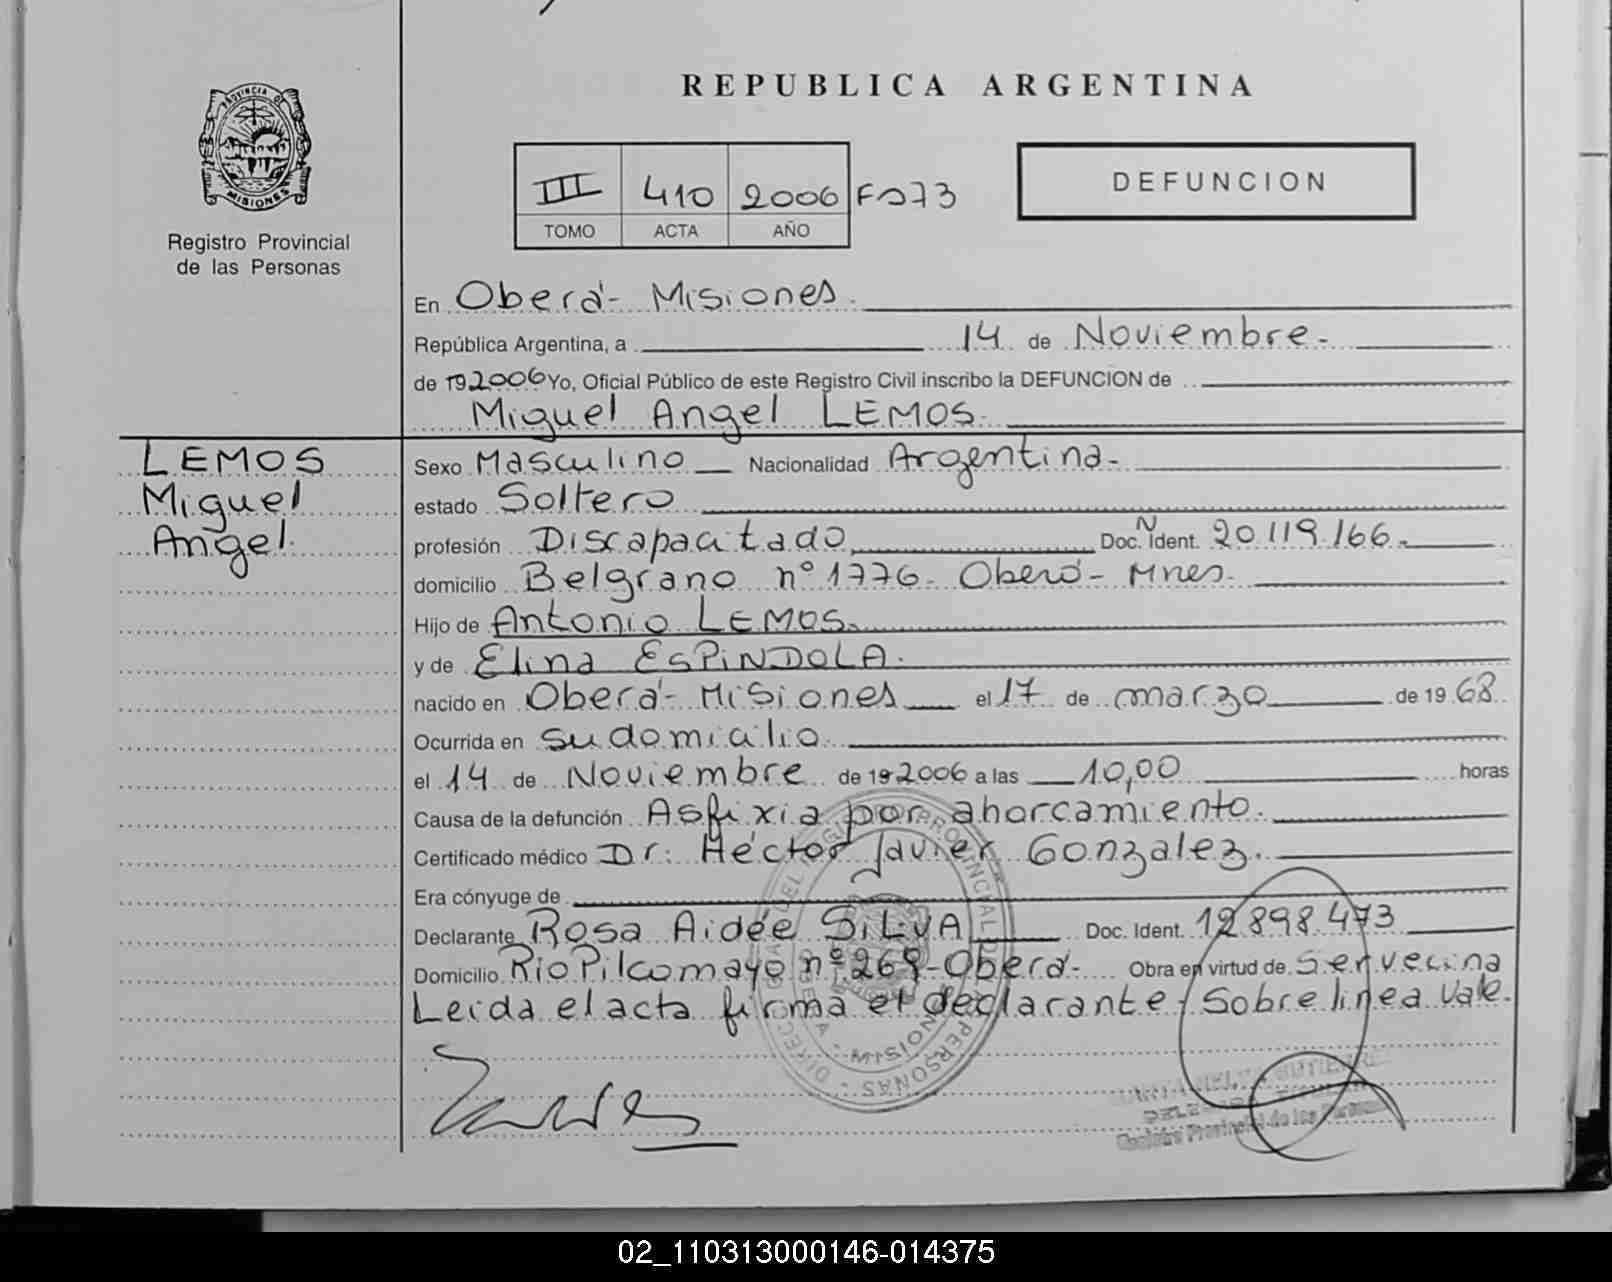 PROVINCIA DE
MISIONES
Registro Provincial
de las Personas
REPUBLICA ARGENTINA
III 410 2006 Fº 73
TOMO ACTA AÑO
DEFUNCION
En Oberá - Misiones.
República Argentina, a 14 de Noviembre.
de 19 2006 Yo, Oficial Público de este Registro Civil inscribo la DEFUNCION de
Miguel Angel LEMOS.
LEMOS
Miguel
Angel.
Sexo Masculino Nacionalidad Argentina.
estado Soltero
profesión Discapacitado Doc. N Ident. 20.119.166.
domicilio Belgrano nº 1776. Oberá - Mnes.
Hijo de Antonio LEMOS.
y de Elina ESPINDOLA.
nacido en Oberá - Misiones el 17 de marzo de 19 68
Ocurrida en su domicilio.
el 14 de Noviembre de 19 2006 a las 10,00 horas
Causa de la defunción Asfixia por ahorcamiento.
Certificado médico Dr: Héctor Javier Gonzalez.
Era cónyuge de
Declarante Rosa Aidée SILVA Doc. Ident. 12.898.473
Domicilio Rio Pilcomayo nº 268 - Oberá - Obra en virtud de Ser vecina
Leida el acta firma el declarante; Sobre linea Vale.
Registro Provincial de las Personas
02_110313000146-014375